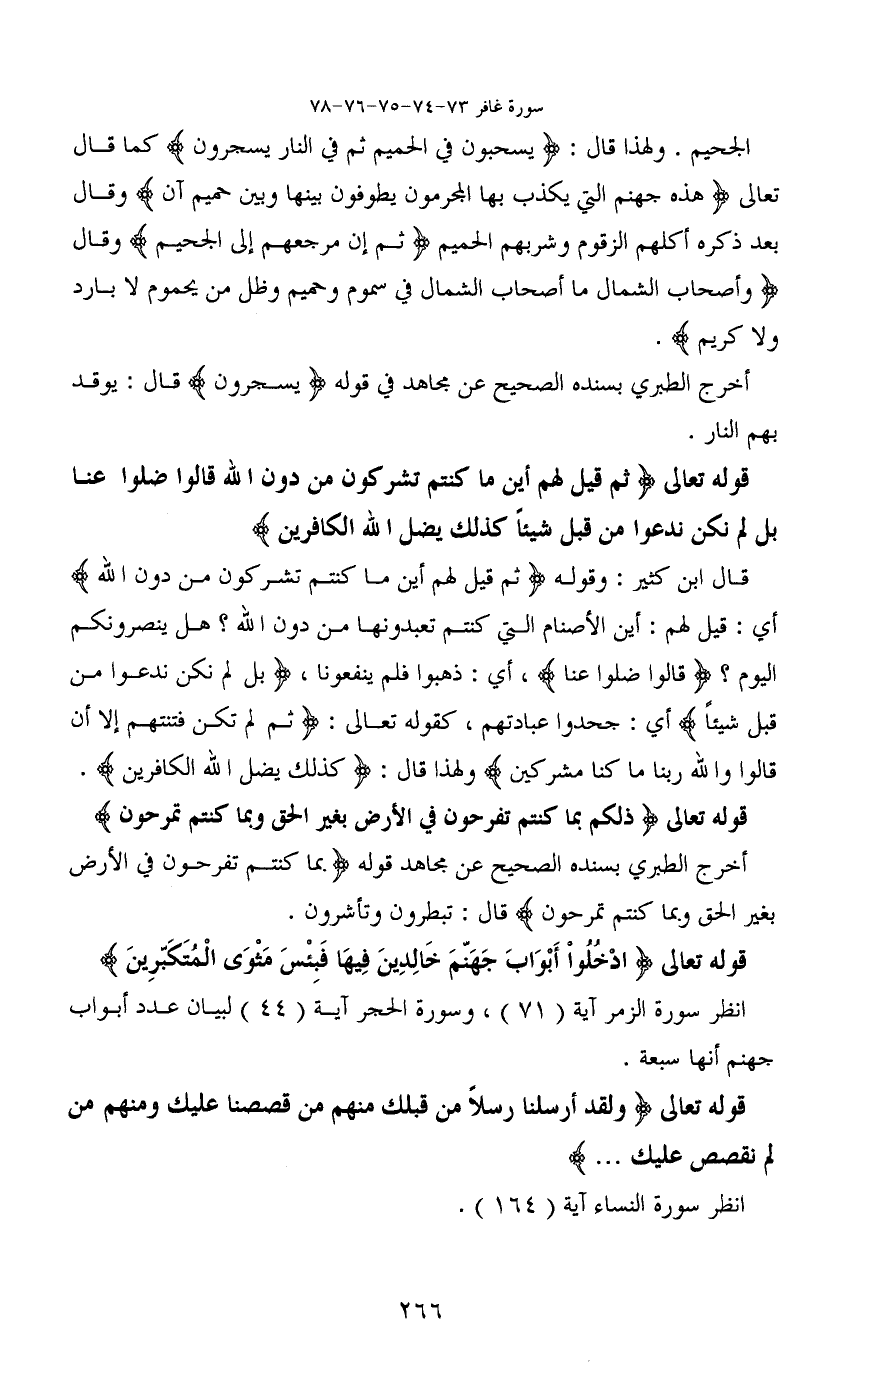 سورة غافر ٧٣-٧٤-٧٥-٧٦-٧٨
الجحيم . ولهذا قال : ﴿ يسحبون في الحميم ثم في النار يسجرون ﴾ كما قال
تعالى ﴿ هذه جهنم التي يكذب بها المجرمون يطوفون بينها وبين حميم آن ﴾ وقال
بعد ذكره أكلهم الزقوم وشربهم الحميم ﴿ ثم إن مرجعهم إلى الجحيم ﴾ وقال
﴿ وأصحاب الشمال ما أصحاب الشمال في سموم وحميم وظل من يحموم لا بارد
ولا كريم ﴾ .
أخرج الطبري بسنده الصحيح عن مجاهد في قوله ﴿ يسجرون ﴾ قال : يوقد
بهم النار .
قوله تعالى ﴿ ثم قيل لهم أين ما كنتم تشركون من دون الله قالوا ضلوا عنا
بل لم نكن ندعوا من قبل شيئاً كذلك يضل الله الكافرين ﴾
قال ابن كثير : وقوله ﴿ ثم قيل لهم أين ما كنتم تشركون من دون الله ﴾
أي : قيل لهم : أين الأصنام التي كنتم تعبدونها من دون الله ؟ هل ينصرونكم
اليوم ؟ ﴿ قالوا ضلوا عنا ﴾ ، أي : ذهبوا فلم ينفعونا ، ﴿ بل لم نكن ندعوا من
قبل شيئاً ﴾ أي : جحدوا عبادتهم ، كقوله تعالى : ﴿ ثم لم تكن فتنتهم إلا أن
قالوا والله ربنا ما كنا مشركين ﴾ ولهذا قال : ﴿ كذلك يضل الله الكافرين ﴾ .
قوله تعالى ﴿ ذلكم بما كنتم تفرحون في الأرض بغير الحق وبما كنتم تمرحون ﴾
أخرج الطبري بسنده الصحيح عن مجاهد قوله ﴿ بما كنتم تفرحون في الأرض
بغير الحق وبما كنتم تمرحون ﴾ قال : تبطرون وتأشرون .
قوله تعالى ﴿ ادْخُلُواْ أَبْوَابَ جَهَنَّمَ خَالِدِينَ فِيهَا فَبِئْسَ مَثْوَى الْمُتَكَبِّرِينَ ﴾
انظر سورة الزمر آية ( ٧١ ) ، وسورة الحجر آية ( ٤٤ ) لبيان عدد أبواب
جهنم أنها سبعة .
قوله تعالى ﴿ ولقد أرسلنا رسلاً من قبلك منهم من قصصنا عليك ومنهم من
لم نقصص عليك ... ﴾
انظر سورة النساء آية ( ١٦٤ ) .
٢٦٦